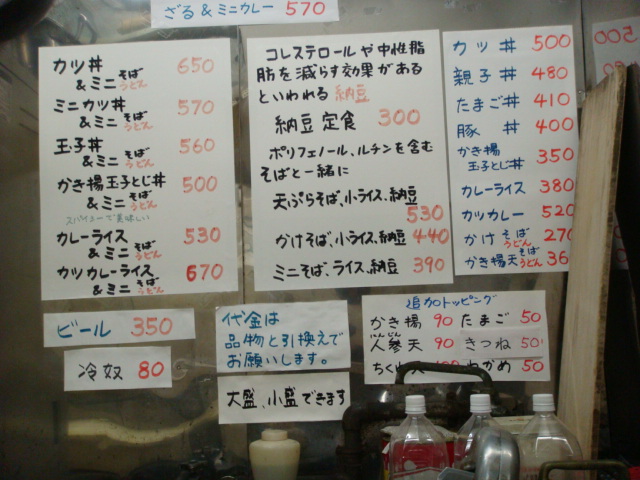 ざる&ミニカレー 570
カツ丼 650
&ミニ そば うどん
ミニカツ丼 570
&ミニ そば うどん
玉子丼 560
&ミニ そば うどん
かき揚玉子とじ丼 500
&ミニ そば うどん
スパイシーで美味しい
カレーライス 530
&ミニ そば うどん
カツカレーライス 670
&ミニ そば うどん
コレステロールや中性脂
肪を減らす効果がある
といわれる 納豆
納豆定食 300
ポリフェノール、ルチンを含む
そばと一緒に
天ぷらそば、小ライス、納豆
530
かけそば、小ライス、納豆 440
ミニそば、ライス、納豆 390
カツ丼 500
親子丼 480
たまご丼 410
豚丼 400
かき揚 350
玉子とじ丼
カレーライス 380
カツカレー 520
かけ そば うどん 270
かき揚天 そば うどん 36
500
ビール 350
冷奴 80
代金は
品物と引換えで
お願いします。
大盛、小盛できます
追加トッピング
かき揚 90 たまご 50
人参天 90 きつね 50
ちくわ わかめ 50